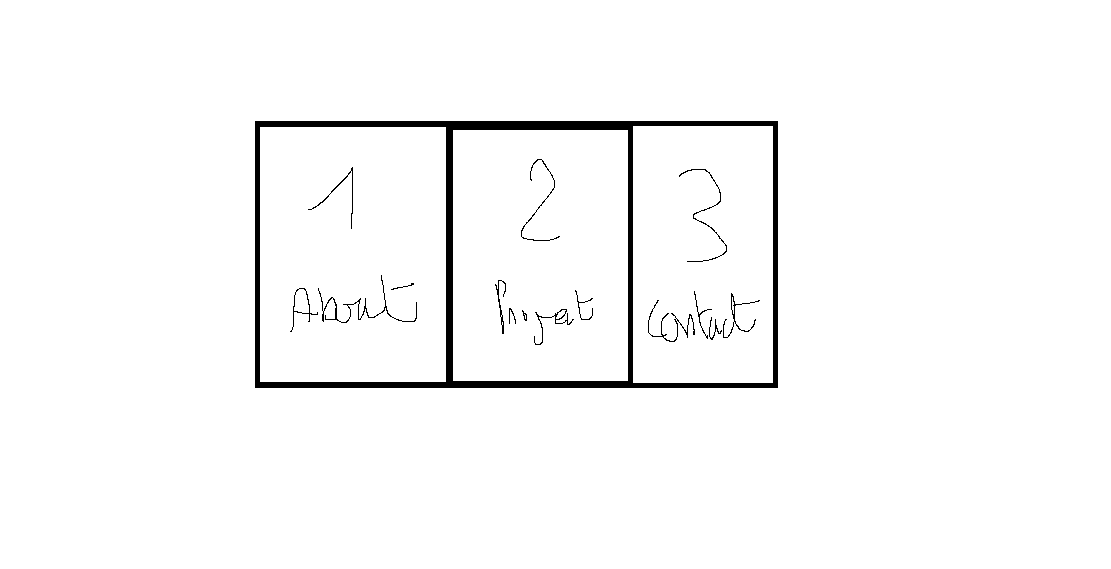 1
About
2
Project
3
Contact